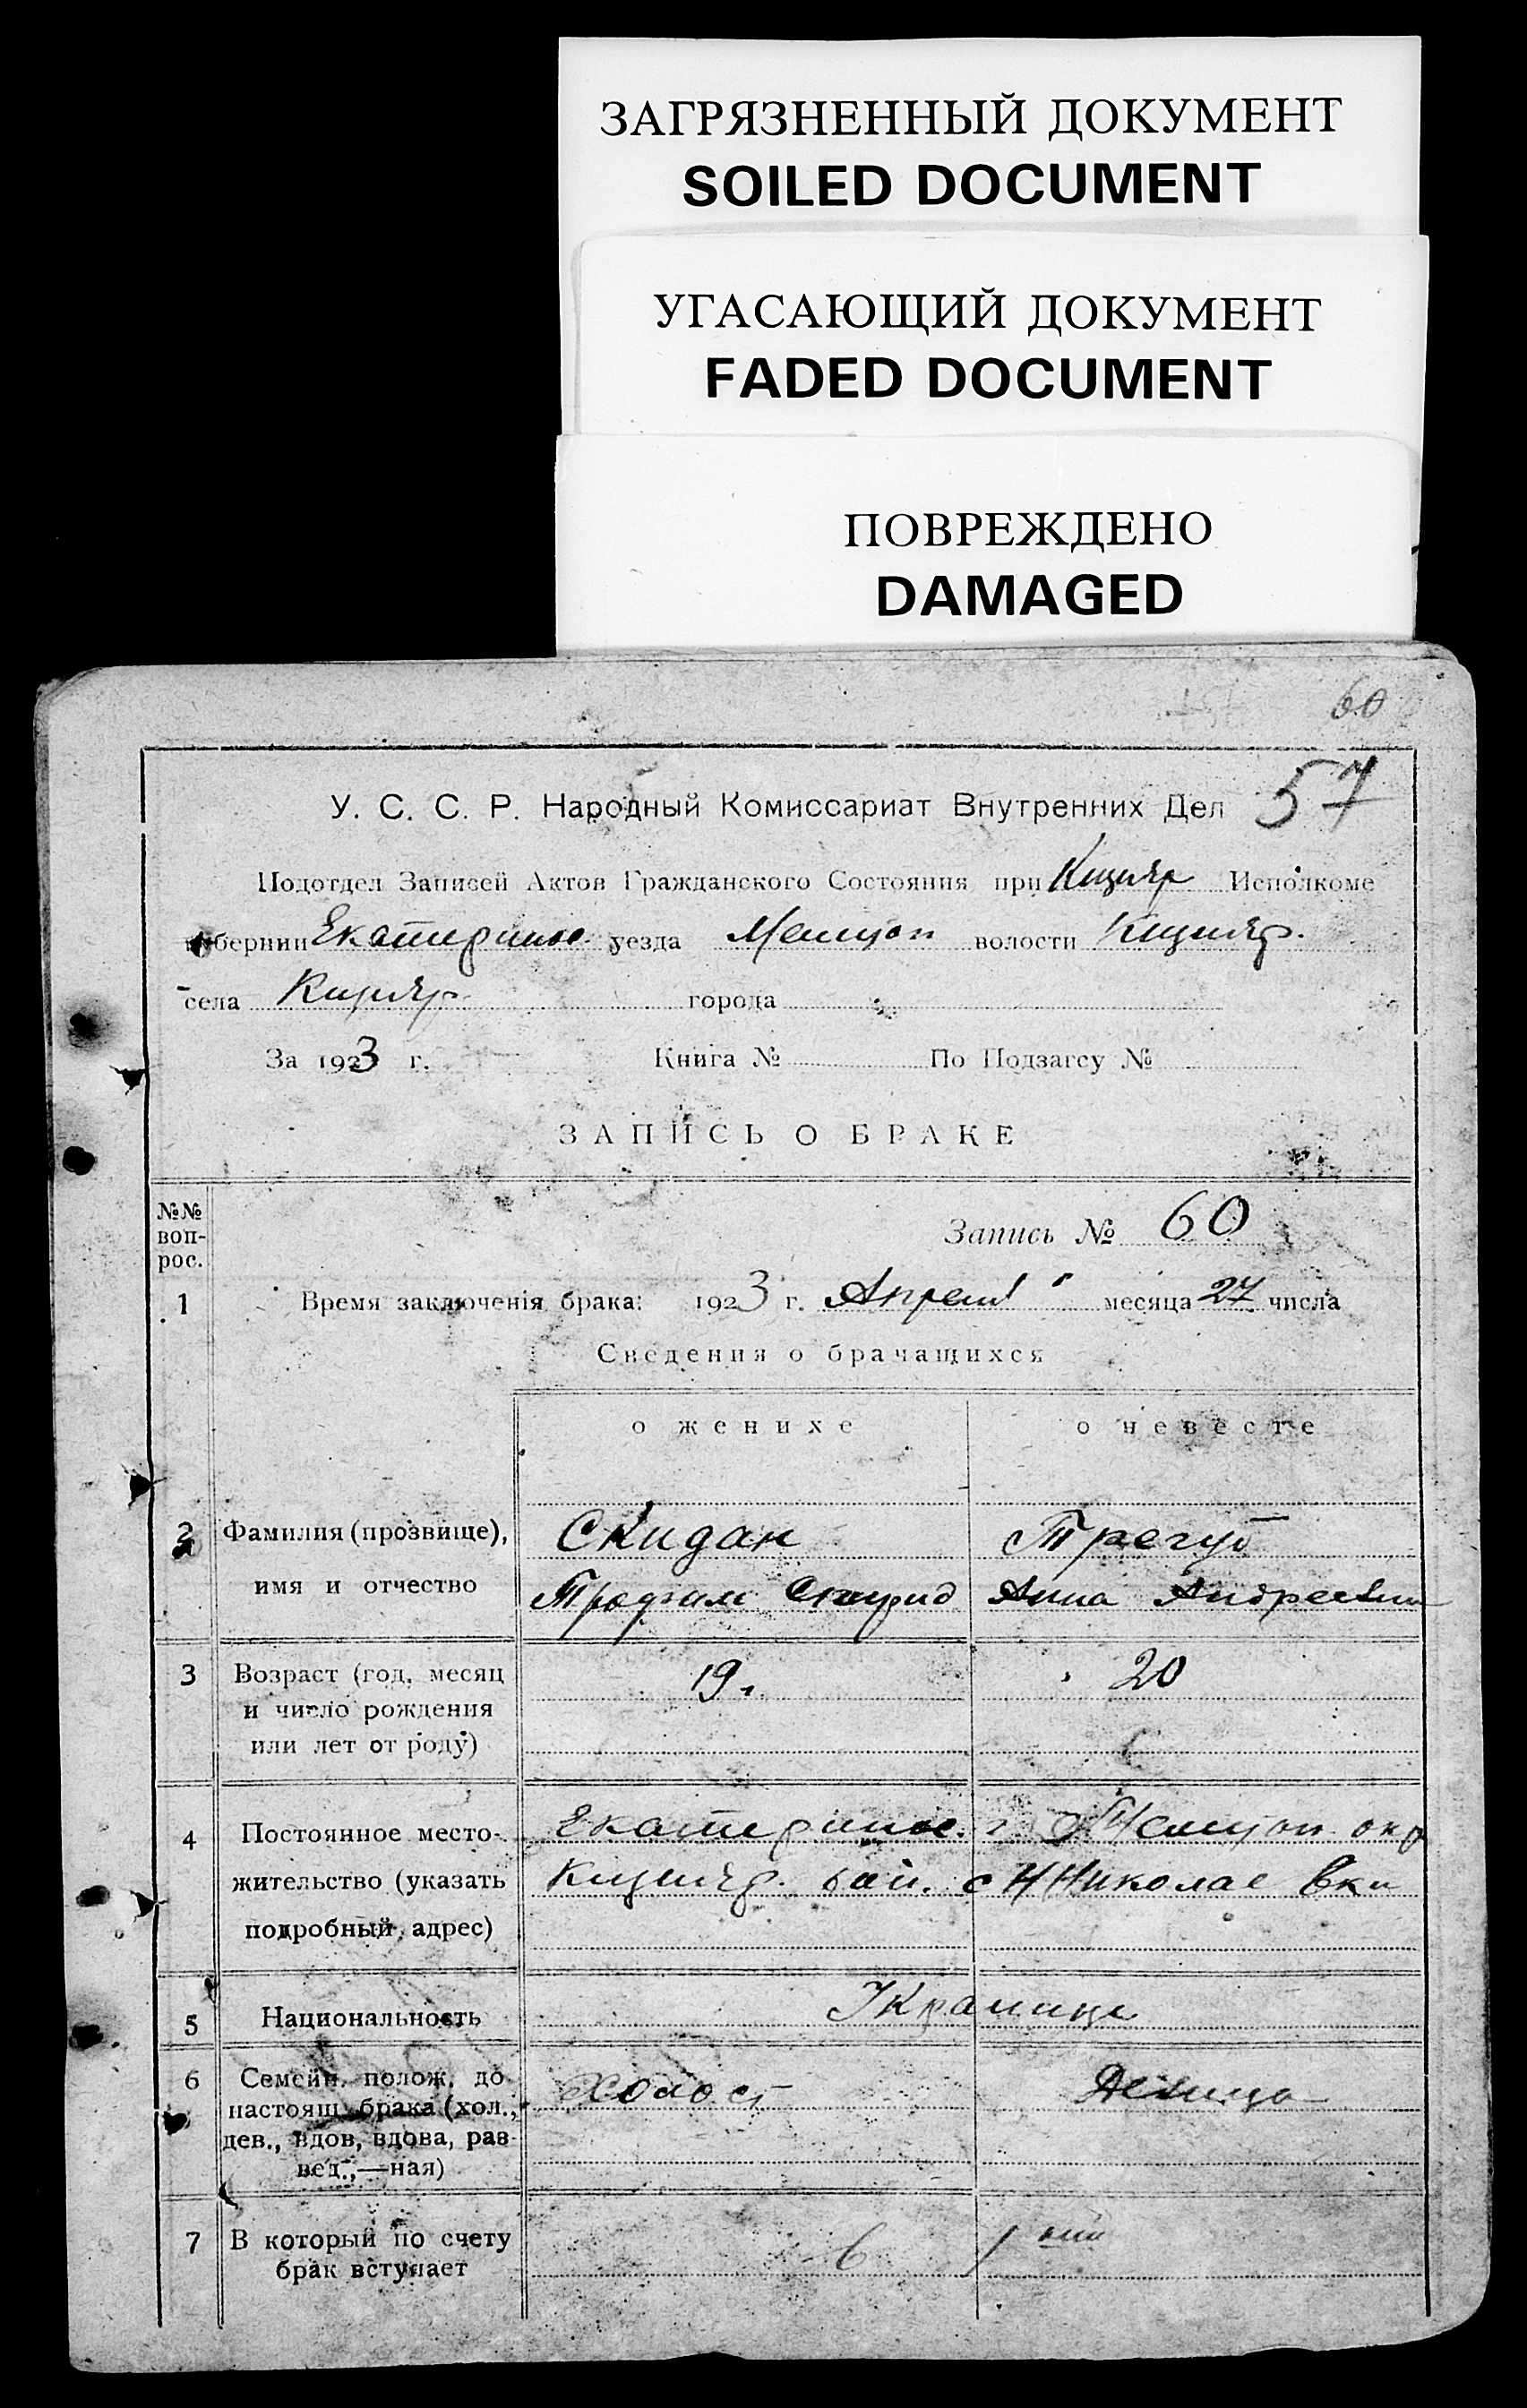 ЗАГРЯЗНЕННЫЙ ДОКУМЕНТ
SOILED DOCUMENT
УГАСАЮЩИЙ ДОКУМЕНТ
FADED DOCUMENT
ПОВРЕЖДЕНО
DAMAGED
60
57
У. С. С. Р. Народный Комиссариат Внутренних Дел
Подотдел Записей Актов Гражданского Состояния при Исполкоме
губернии Екатеринос. уезда волости
села города
За 1923 г. Книга № По Подзагсу №
ЗАПИСЬ О БРАКЕ
№№ воп-рос.
Запись № 60
1 Время заключенія брака: 1923 г. Апреля месяца 27 числа
Сведения о брачащихся
о женихе о невесте
2 Фамилия (прозвище), Скидан Трегуб
имя и отчество Трофим Спирид Анна Андреевна
3 Возраст (год, месяц 19 г. 20
и число рождения
или лет от роду)
4 Постоянное место- Екатеринос. г. окр
жительство (указать рай. с Н Николаевки
подробный адрес)
5 Национальность Украинцы
6 Семейн. полож. до Холост Девица
настоящ. брака (хол.,
дев., вдов, вдова, раз-
вед.,—ная)
7 В который по счету в 1
брак вступает